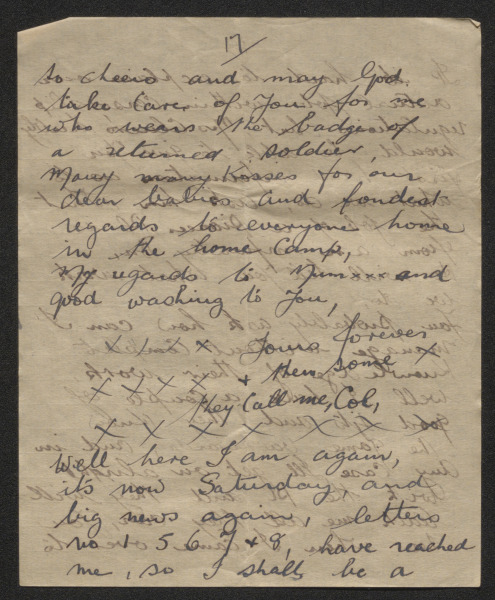 17/
to cheerio and may God
take care of You for me
who wears the badge of
a returned soldier,
Many many kosses for our
dear babies and fondest
regards to everyone home
in the home Camp,
My regards to Mum xxx and
good washing to You,
X X X X Yours forever
& then some X
X X X X
They Call me, Col,
X X X X X X X X
Well here I am again,
it's now Saturday, and
big news again, letters
no 1 5 6 7 & 8, have reached
me, so I shall be a